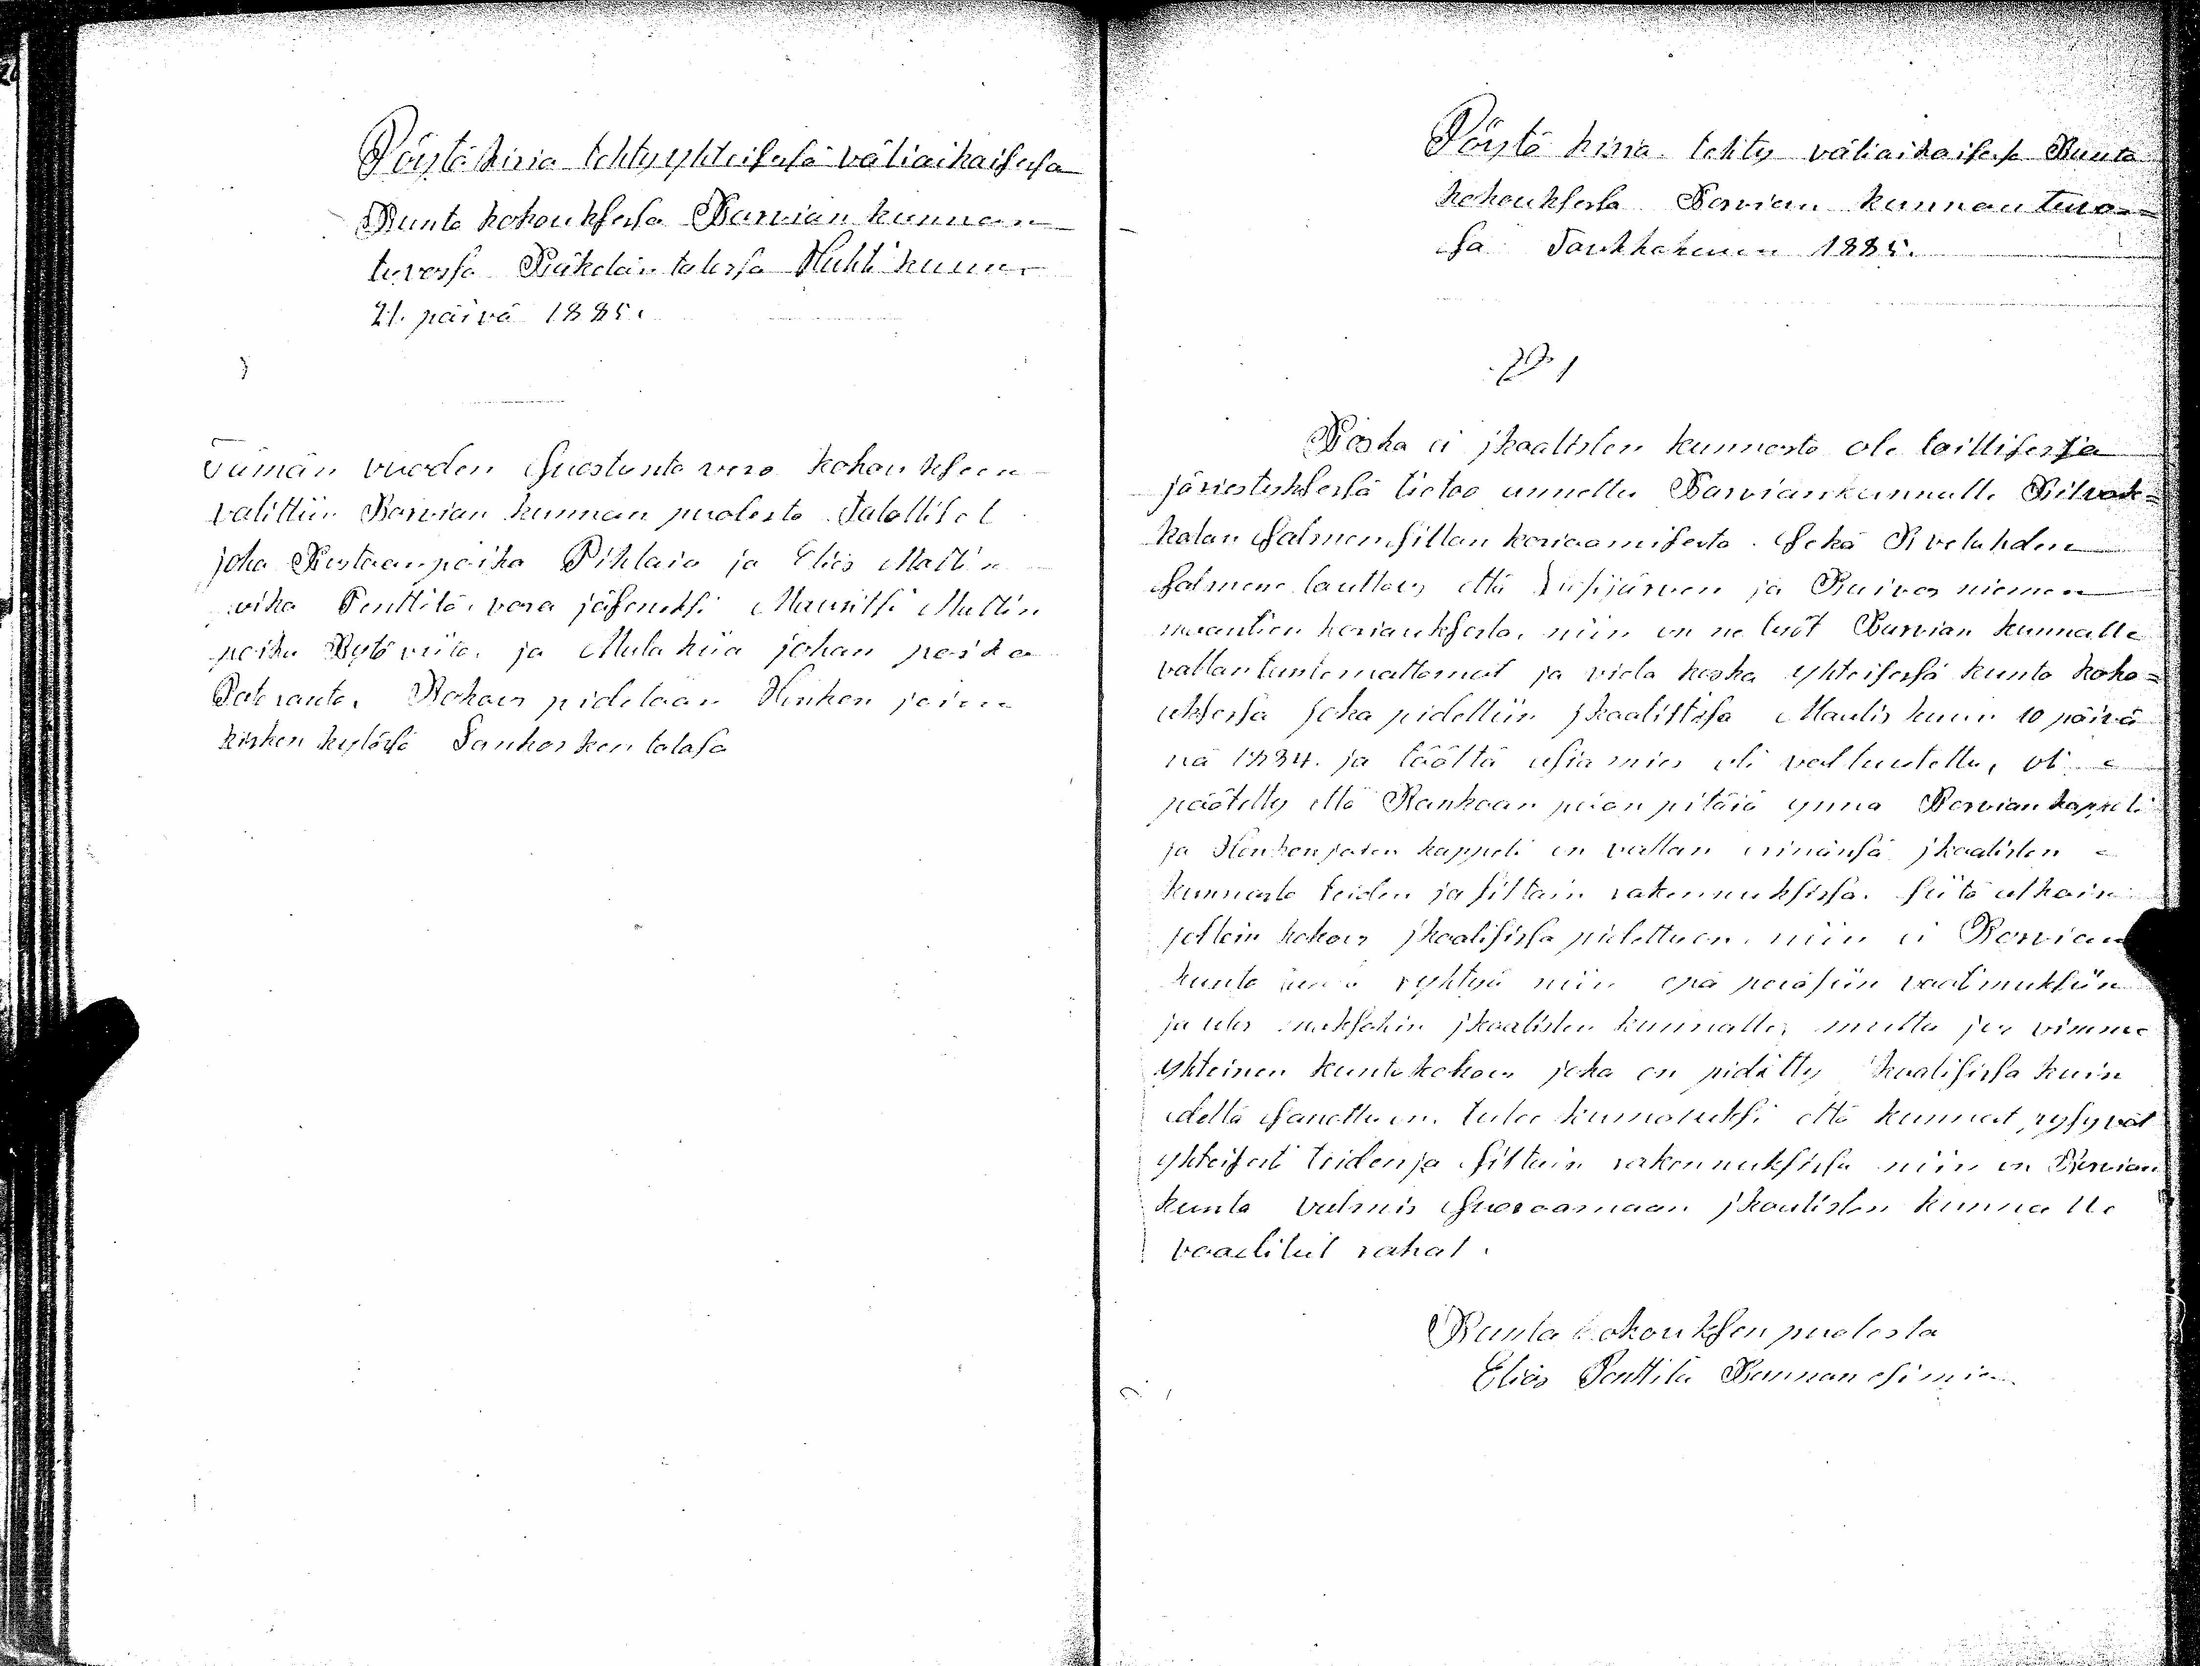 Pöytäkiria tehty yhteisesä väliaikaisesa
Kunta kokouksesa Karvian kunnan
tuvassa Käkelän talossa Huhti kuun
21. päivä 1885.
Tämän vuoden Suostunto vero kokoukseen
valittiin Karvian kunnan puolesta Talolliset
joha Kustaanpoika Pihlaia ja Elias Mattin
poika Penttilä, vara jäseneksi Mauritsi Mattin
poika Kytöviita. ja Mulahiia johan poika
Kokous pidetään Honkon joven
kisken kylässä Lauhasken talosa
Pöytä kiria tehty väliaikaisesa Kunta
kokouksesta Karvian kunnan tuva=
sa Toukkokuun 1885.
§ 1
Koska ei jkaalisten kunnasta ole laillisessa
järiestyksessä tietoa annettu Karvian kunnalle Kilvak=
kalan Salmensillan koriaamisesta. Sekä Kivelahden
Salmene lauttav, että ja Kuivas niemen
maantien koriauksesta, niin on ne työt Karvian kunnalle
vallan tuntemattomat ja viela koska yhteisessä kunta koko=
uksessa joka pidettiin jkaalisisa Maalis kuun 10 päivä
nä 1884. ja täältä asiamies oli valtuutettu, oli
päätetty että Kankaan pään pitäiä ynnä Karvian kappeli
ja Honkon joven kappeli on vallan erinänsä jkaalisten
kunnasta teiden ja siltain rakennuksissa. siitä alkain
jolloin kokous jkaalisissa pidettu on. niin ei Karvian
kunta ryhtyä niin epä peräsiin vaatimuksiin
ja jkaalisten kunnalle, mutta jos vimme
yhteinen kuntakokous joka on pidätty jkaalisissa kuin
edellä sanottu on. tulee kumotuksi että kunnat pysyvät
yhteisesti teiden ja siltain rakennuksissa niin on Karvian
kunta valmis Suoraamaan jkaalisten kunnalle
vaaditut rahat.
Kunta kokouksen puolesta
Elias Penttilä Kunnan esimies